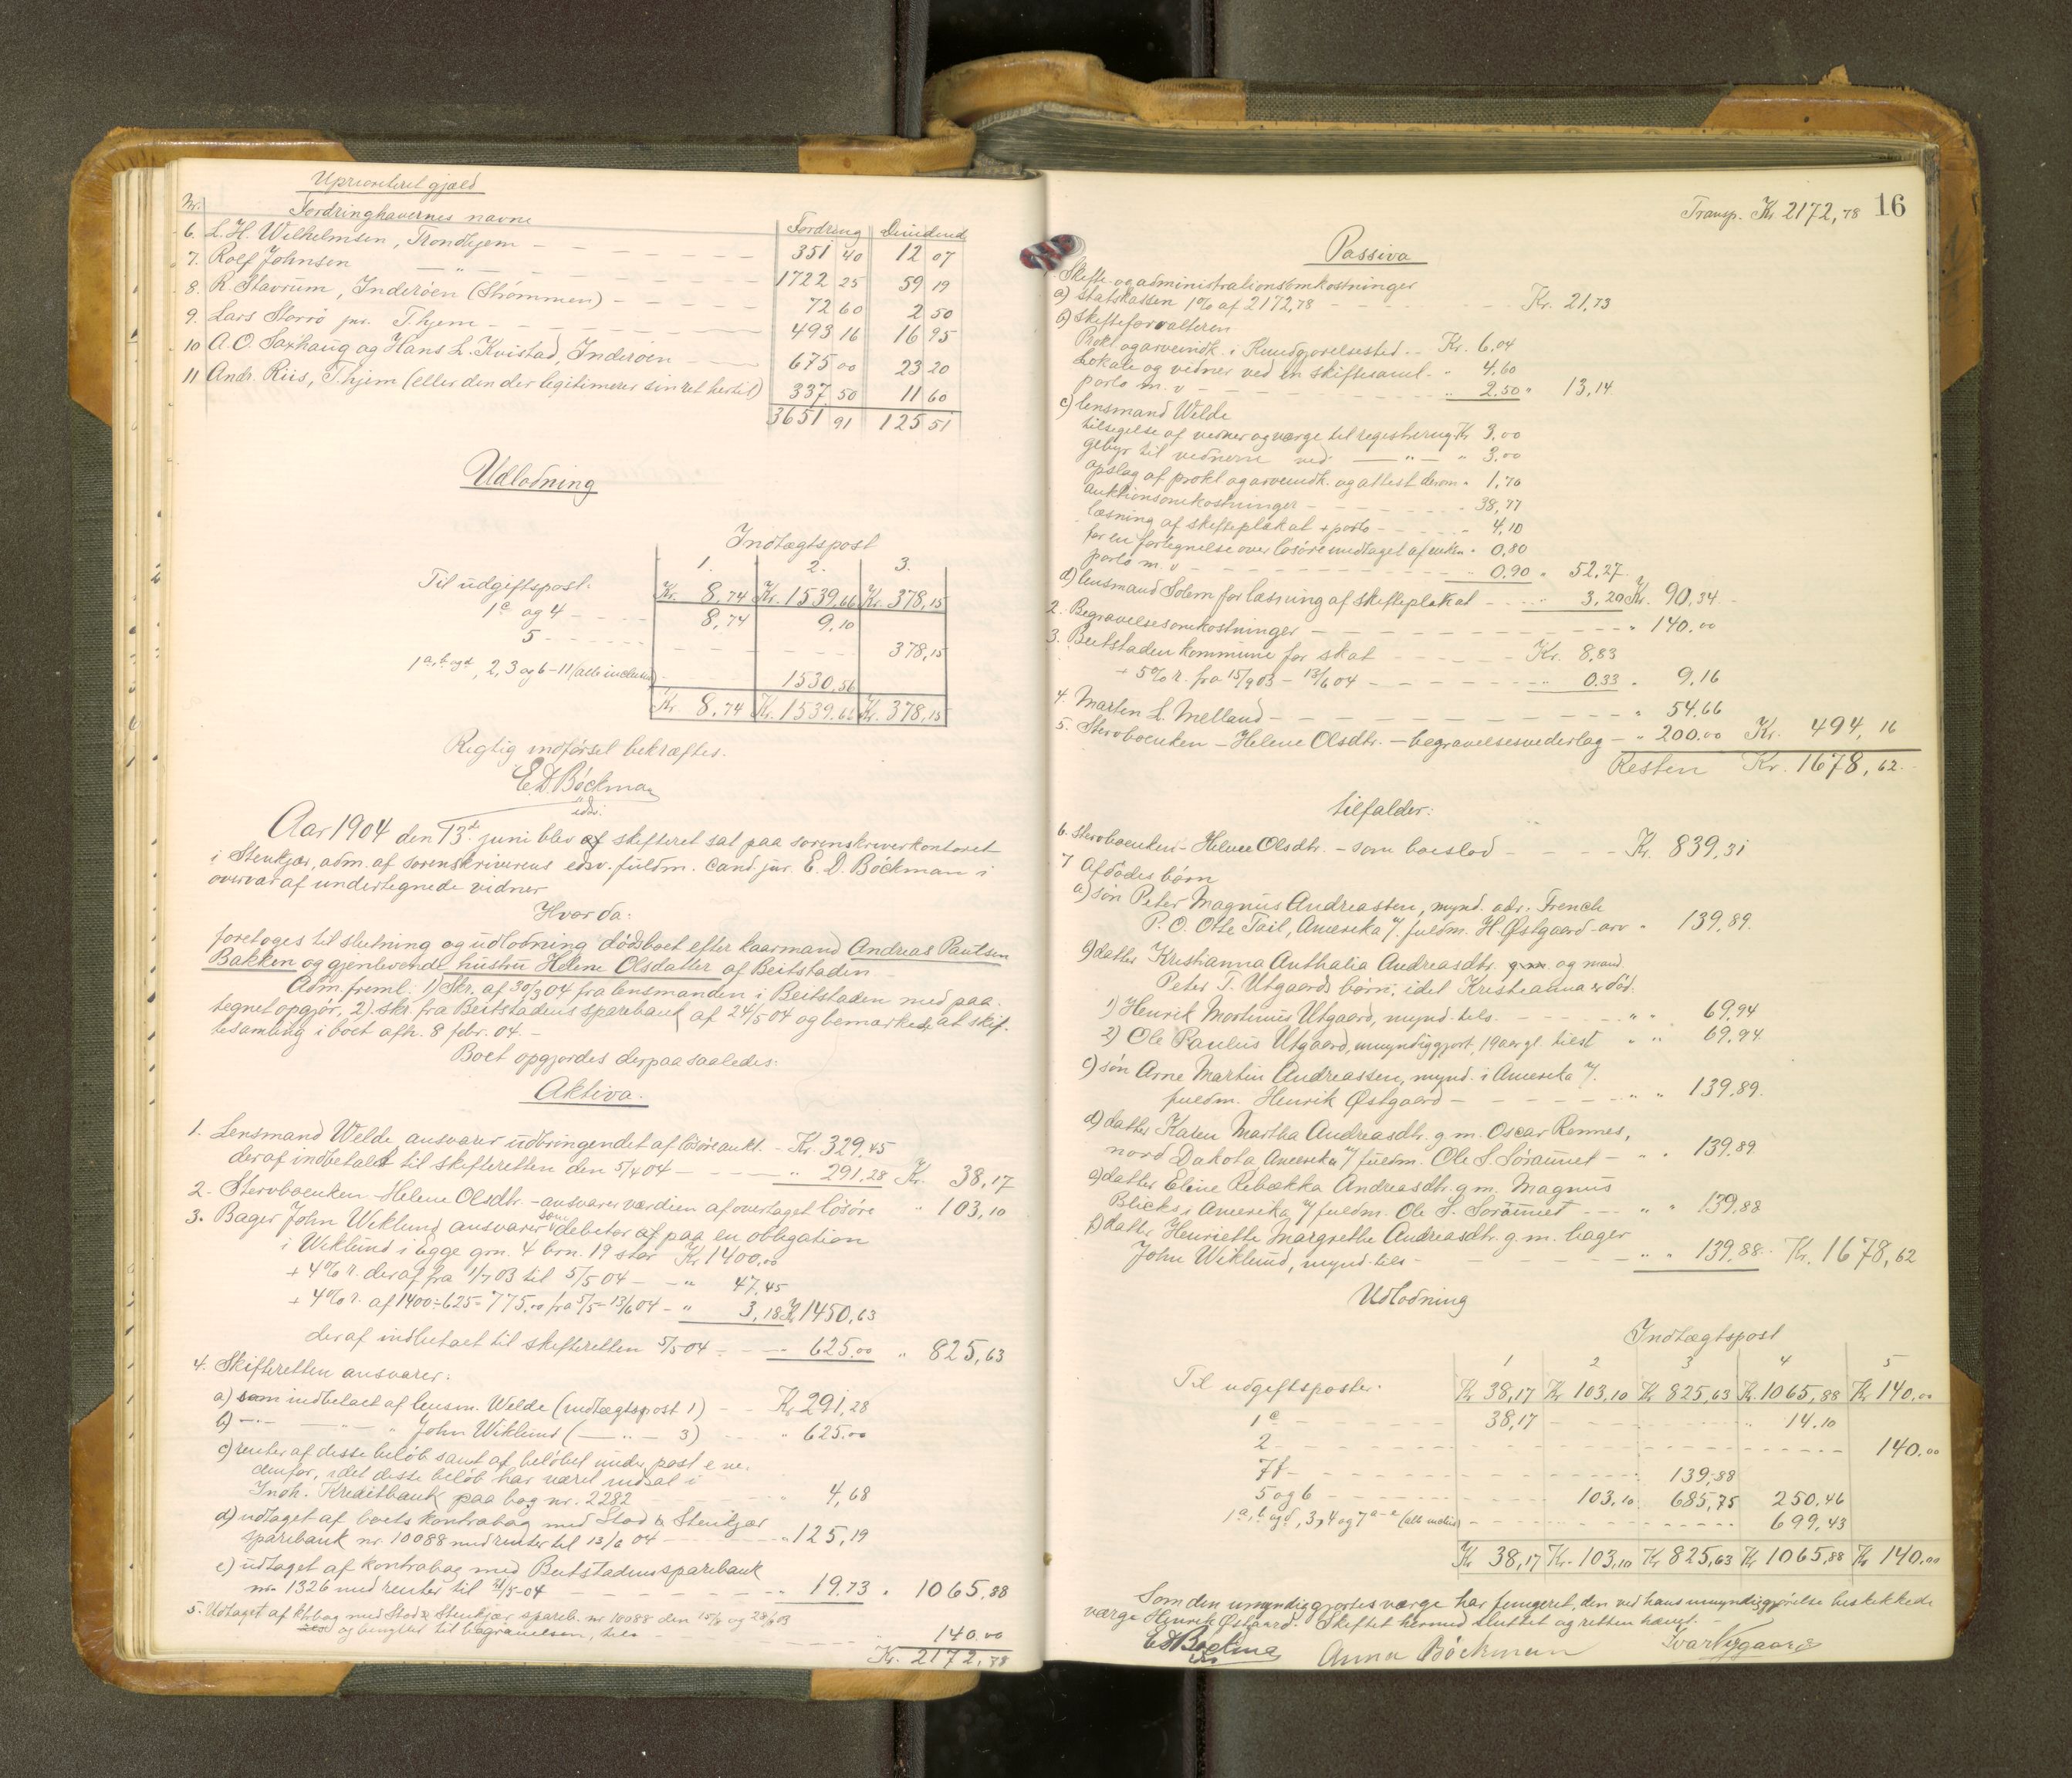 Uprioriteret gjæld
Nr. Fordringhavernes navne Fordring Dividende
6. L. H. Wilhelmsen, Trondhjem - - - 351 40 12 07
7. Rolf Johnsen - " - - - 1722 25 59 19
8. R. Stavrum, Inderöen (Strömmen) - - - 72 60 2 50
9. Lars Storrö jnr. T.hjem - - - 493 16 16 95
10 A. O. Saxhaug og Hans L. Kvistad, Inderöen - 675 00 23 20
11 Andr. Riis, T.hjem (eller den der legitimerer sin ret hertil) 337 50 11 60
3651 91 125 51
Udlodning
Indtægtspost
1. 2. 3.
Til udgiftspost: Kr. 8,74 Kr. 1539,66 Kr. 378,15
1c og 4 - - - 8,74 9,10
5 - - - 378,15
1a, b og d, 2, 3 og 6-11 (alle inclusive) 1530,56
Kr. 8,74 Kr. 1539,66 Kr. 378,15
Rigtig indförsel bekræftes.
E. D. Böckman
edsv.
Aar 1904 den 13de juni blev af skifteret sat paa sorenskriverkontoret
i Stenkjær, adm. af sorenskriverens edsv. fuldm. cand. jur. E. D. Böckman i
overvær af undertegnede vidner
Hvor da:
foretoges til slutning og udlodning dödsboet efter kaarmand Andreas Paulsen
Bakken og gjenlevende hustru Helene Olsdatter af Beitstaden
Adm. freml. 1) Skr. af 30/3 04 fra lensmanden i Beitstaden med paa-
tegnet opgjör, 2) skr. fra Beitstadens sparebank af 24/5 04 og bemærkede at skif-
tesamling i boet afh. 8 febr. 04. -
Boet opgjordes derpaa saaledes:
Aktiva.
1. Lensmand Welde ansvarer udbringendet af lösöreaukt. - Kr. 329,45
deraf indbetalt til skifteretten den 5/4 04 - - - " 291,28 Kr. 38,17
2. Stervboenken - Helene Olsdtr. - ansvarer værdien af overtaget lösöre " 103,10
3. Bager John Wiklund ansvarer som debitor af paa en obligation
i Wiklund i Egge grn. 4 brn. 19 stor Kr 1400,00
+ 4% r. deraf fra 1/7 03 til 5/5 04 - - " 47,45
+ 4% r. af 1400 ÷ 625 = 775,00 fra 5/5 - 13/6 04 - " 3,18 Kr 1450,63
deraf indbetalt til skifteretten 5/5 04 - - - 625,00 " 825,63
4. Skifteretten ansvarer:
a) som indbetalt af lensm. Welde (indtægtspost 1) - - Kr 291,28
b) - " - - " - " John Wiklund ( - " - 3) - - " 625,00
c) renter af disse belöb samt af belöbet under post e ne-
denfor, idet disse belöb har været indsat i
Indh. Kreditbank paa bog nr. 2282 " 4,68
d) udtaget af boets kontrabog med Stod & Stenkjær
sparebank nr. 10088 med renter til 13/6 04 - - - " 125,19
e) udtaget af kontrabog med Beitstadens sparebank
nr. 1326 med renter til 31/5-04 - - - " 19,73 " 1065,88
5. Udtaget af ktrbog med Stod & Stenkjær spareb. nr 10088 den 15/8 og 28/8 03
og benyttet til begravelsen, tils. - - - " 140,00
Kr. 2172,78
Transp. Kr 2172,78 16
Passiva
1. Skifte og administrationsomkostninger
a) statskassen 1% af 2172,78 - - - Kr. 21,73
b) skifteforvalteren
Prokl. og arveindk. i Kundgjörelsestid. - Kr. 6,04
Lokale og vidner ved en skiftesaml. - " 4,60
porto m. v - - - " 2,50 " 13,14
c) lensmand Welde
tilsigelse af vidner og værge til registrering Kr 3,00
gebyr til vidnerne ved - " - " 3,00
opslag af prokl og arveindk. og attest derom " 1,70
auktionsomkostninger - - - " 38,77
læsning af skifteplakat + porto - - - " 4,10
for en fortegnelse over lösöre modtaget af enken " 0,80
porto m. v - - - " 0,90 " 52,27
d) lensmand Solem for læsning af skifteplakat - - - 3,20 Kr. 90,34
2. Begravelsesomkostninger - - - " 140,00
3. Beitstaden kommune for skat - - - Kr. 8,83
+ 5% r. fra 15/9 03 - 13/6 04 - - - " 0,33 " 9,16
4. Marten L. Melland - - - " 54,66
5. Stervboenken - Helene Olsdtr. - begravelsesvederlag - " 200,00 Kr. 494,16
Resten Kr. 1678,62
tilfalder:
6. Stervboenken - Helene Olsdtr. - som boeslod - - - Kr. 839,31
7 Afdödes börn
a) sön Peter Magnus Andreassen, mynd. adr. French
P. O. Otte Tail, Amerika v/ fuldm. H. Østgaard - arv " 139,89
b) datter Kristianna Anthalia Andreasdtr. g.m. og mand
Peter T. Utgaards börn, idet Kristianna er död.
1) Henrik Martinus Utgaard, mynd. tils. - - - " " 69,94
2) Ole Paulus Utgaard, umyndiggjort, 19 aar gl. tilst " " 69,94
c) sön Arne Martin Andreassen, mynd. i Amerika v/
fuldm. Henrik Østgaard - - - " " 139,89
d) datter Karen Martha Andreasdtr. g. m. Oscar Rennes,
nord Dakota Amerika v/ fuldm. Ole S. Söraunet - " " 139,89
e) datter Eline Rebækka Andreasdtr. g. m. Magnus
Blicks i Amerika v/ fuldm. Ole S. Söraunet - - " " 139,88
f) datter Henriette Margrethe Andreasdtr. g. m. bager
John Wiklund, mynd. tils - - - " " 139,88 Kr. 1678,62
Udlodning
Indtægtspost
1 2 3 4 5
Til udgiftsposter: Kr 38,17 Kr 103,10 Kr 825,63 Kr. 1065,88 Kr 140,00
1c - - - 38,17 - - - 14,10
2 - - - 140,00
7f - - - 139,88
5 og 6 - - - 103,10 685,75 250,46
1a, b og d, 3, 4 og 7a-e (alle inclus) - - - 699,43
Kr 38,17 Kr. 103,10 Kr 825,63 Kr 1065,88 Kr 140,00
Som den umyndiggjortes værge har fungeret, den ved hans umyndiggjörelse beskikkede
værge Henrik Østgaard. Skiftet hermed sluttet og retten hævet. -
E D Böckman
edsv
Anna Böckman
Ivar Vegaard